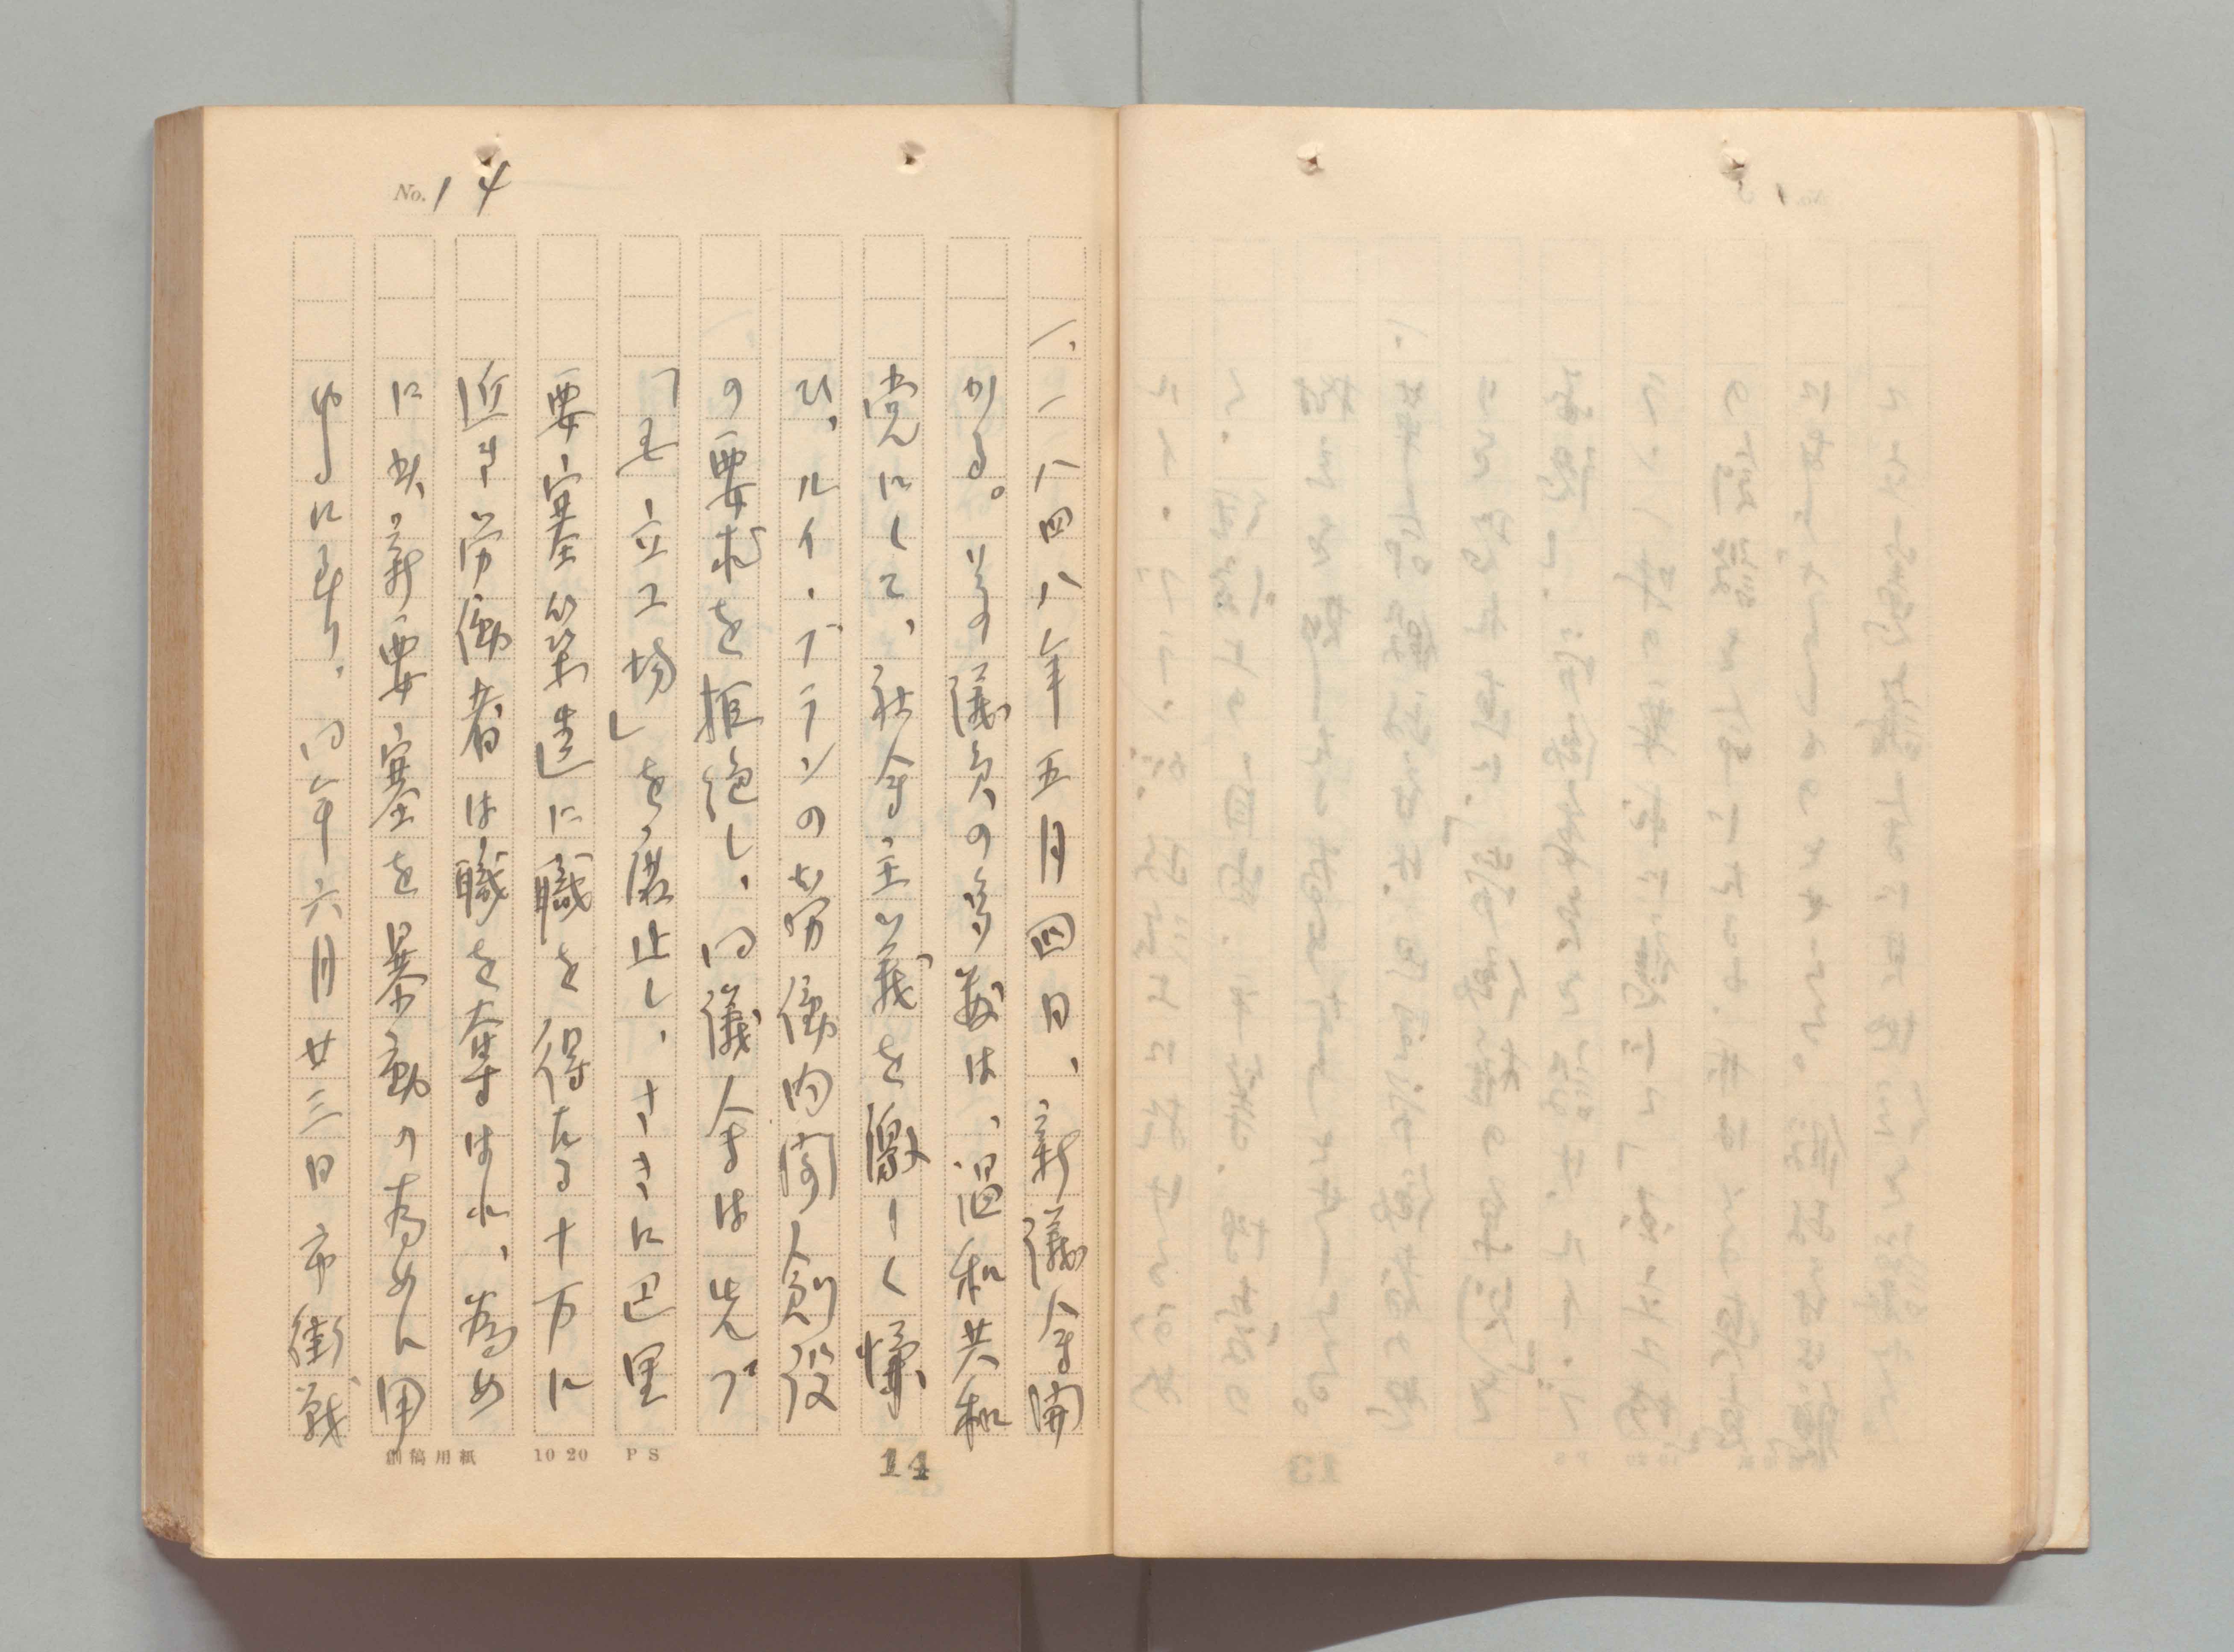 No. 14
一、一八四八年五月四日、新議会開
かる。其の議員の多数は、温和共和
党にして、社会主義を激しく憎
ひ、ルイ・ブランの労働内閣創設
の要求を拒絶し、同議会は先づ
「国立工場」を廃止し、さきに巴里
要塞築造に職を得たる十万に
近き労働者は職を奪はれ、為め
に此新要塞を暴動の為めに用
ゆるに至り、同年六月廿三日市街戦
創稿用紙 10 20 PS
14